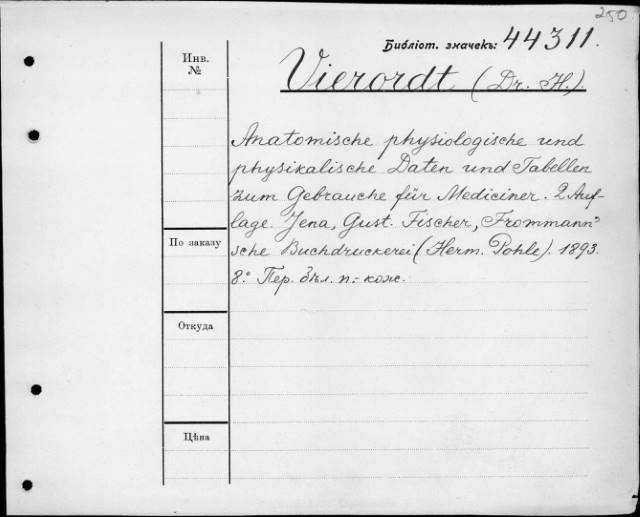 250
Библіот. значекъ: 44311.
Инв.
№
Vierordt (Dr. H.).
Anatomische physiologische und
physikalische Daten und Tabellen
zum Gebrauche für Mediciner. 2 Auf-
lage. Jena, Gust. Fischer, Frommann'
sche Buchdruckerei (Herm. Pohle). 1893.
8.° Пер. бѣл. п.- кож.
По заказу
Откуда
Цѣна